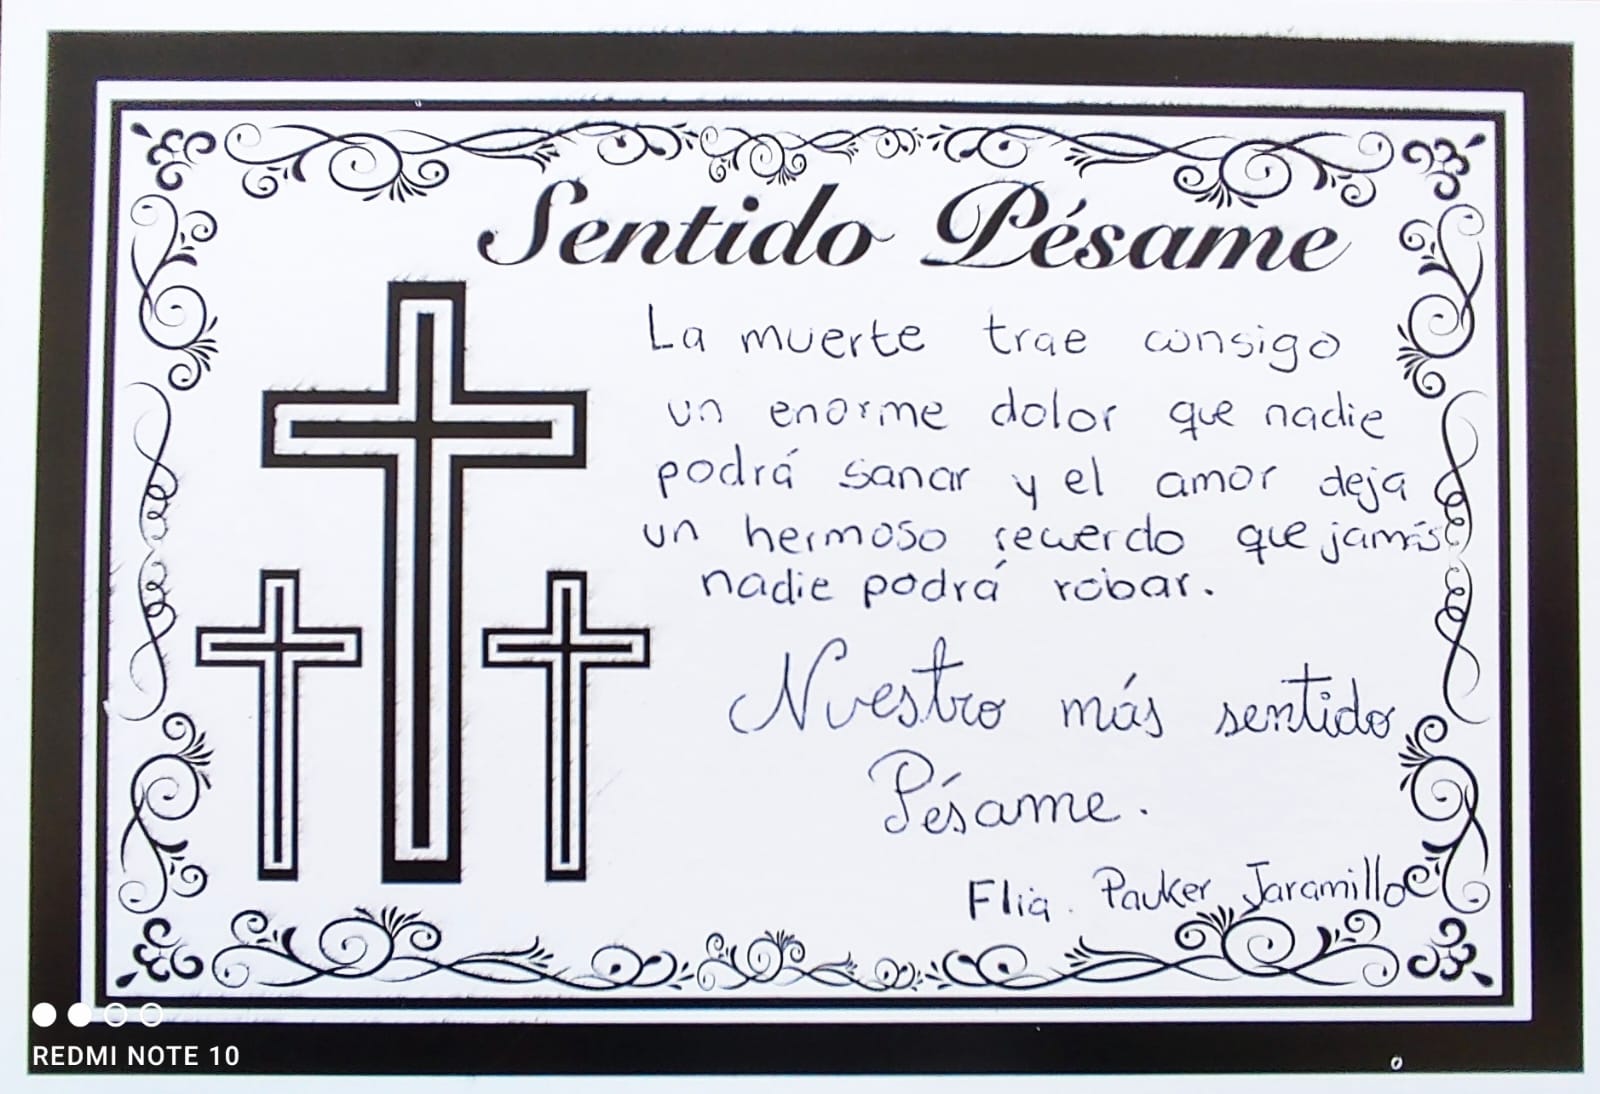 Sentido Pésame
La muerte trae consigo
un enorme dolor que nadie
podrá sanar y el amor deja
un hermoso recuerdo que jamás
nadie podrá robar.
Nuestro más sentido
Pésame.
Flia. Pauker Jaramillo
REDMI NOTE 10